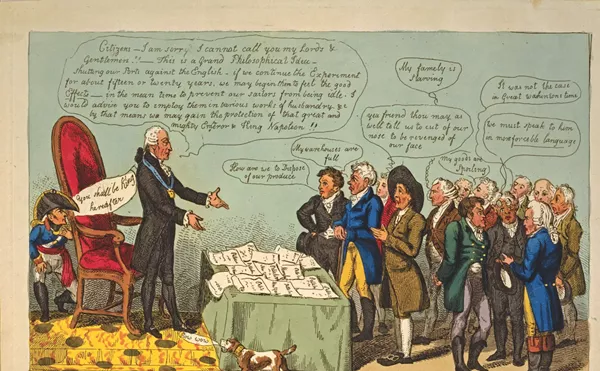 Citizens — I am sorry I cannot call you my Lords &
Gentlemen!! — This is a Grand Philosophical Idea —
Shutting our Ports against the English — if we continue the Experiment
for about fifteen or twenty years, we may begin then to feel the good
Effects — in the mean time to prevent our sailors from being idle. I
would advise you to employ them in various works of husbandry &c
by that means we may gain the protection of that great and
mighty Emperor & King Napoleon!!
You shall be King
hereafter
How are we to Dispose
of our produce
My warehouses are
full
My family is
Starving
yea friend thou may as
well tell us to cut of our
nose to be revenged of
our face
my goods are
Spoiling
It was not the case
in Great Washintons time
We must speak to him
in more forceable language
Bow wow